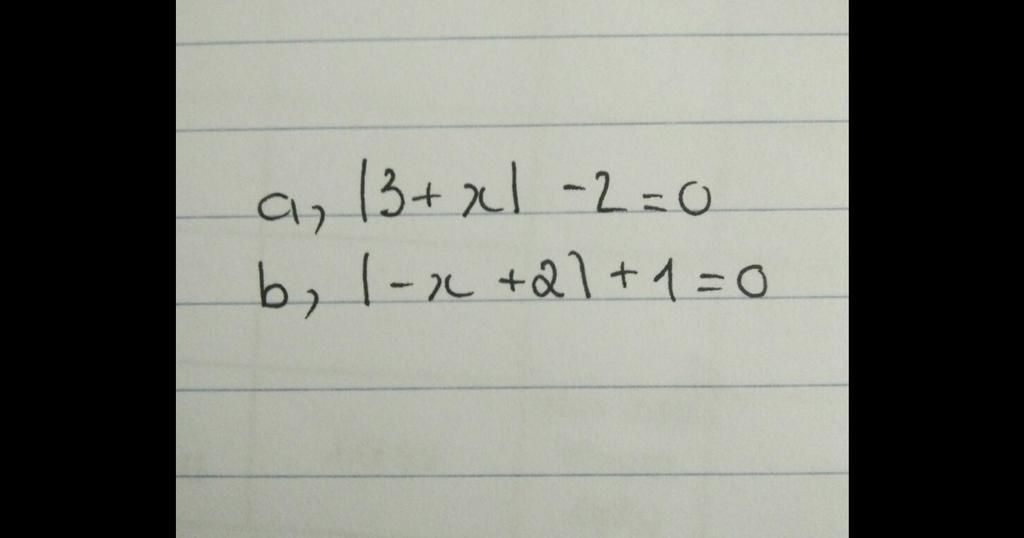 a, |3+x| -2=0
b, |-x +2|+1=0